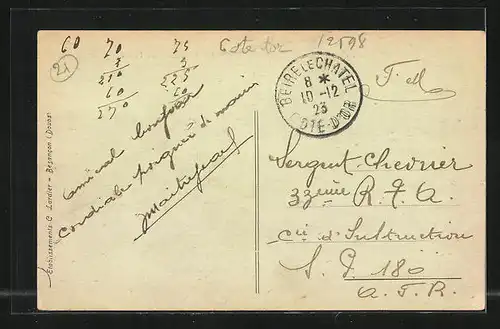 21
60 70 75
3 3
210 225
60 60
270
Cote dor
12598
BEIRE LE CHATEL
8 *
10 - 12
23
COTE-D'OR
F. M.
Amical bonjour
Cordiale poignée de main
Sergent Chevrier
33ème R. T. A.
Cie d'Instruction
S. P. 180
A. F. R.
Etablissements C. Lardier - Besançon (Doubs)